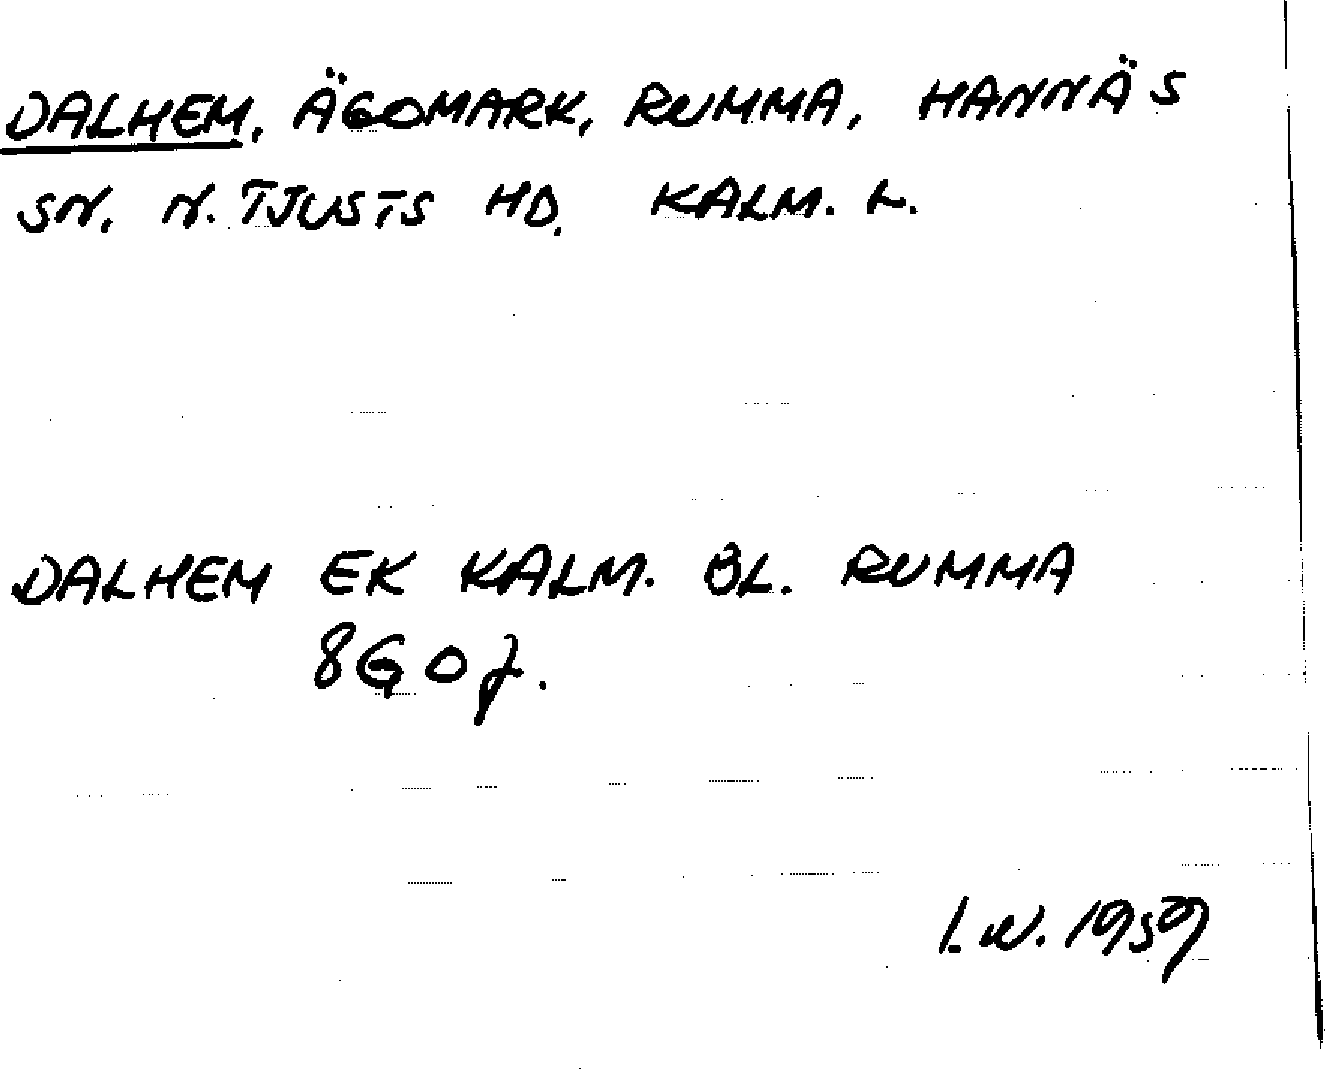 DALHEM, ÄGOMARK, RUMMA, HANNÄS
SN. N. TJUSTS HD. KALM. L.
DALHEM EK KALM. BL. RUMMA
8G0j.
I.W. 1959